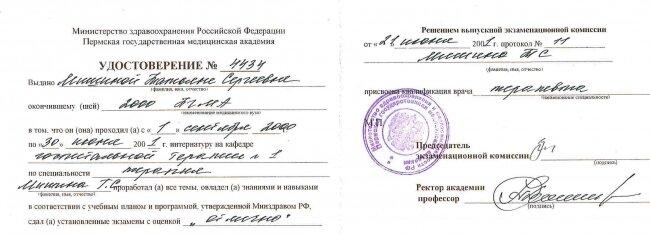 Министерство здравоохранения Российской Федерации
Пермская государственная медицинская академия
УДОСТОВЕРЕНИЕ № 4434
Выдано Мишиной Татьяне Сергеевне
(фамилия, имя, отчество)
окончившему (шей) 2000 ПГМА
(наименование медицинского вуза)
в том, что он (она) проходил (а) с « 1 » сентября 2000
по «30» июня 2001 г. интернатуру на кафедре
госпитальной Терапии № 1
по специальности терапия
Мишина Т.С. проработал (а) все темы, овладел (а) знаниями и навыками
(фамилия, имя, отчество)
в соответствии с учебным планом и программой, утвержденной Минздравом РФ,
сдал (а) установленные экзамены с оценкой «отлично»
Решением выпускной экзаменационной комиссии
от «28 июня 2001 г. протокол № 11
Мишина Т С
(фамилия, имя, отчество)
присвоена квалификация врача терапевта
(наименование специальности)
М.П.
Председатель
экзаменационной комиссии
(подпись)
Ректор академии
профессор
(подпись)